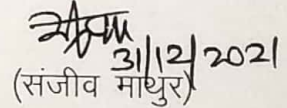 31/12/2021
(संजीव माथुर)